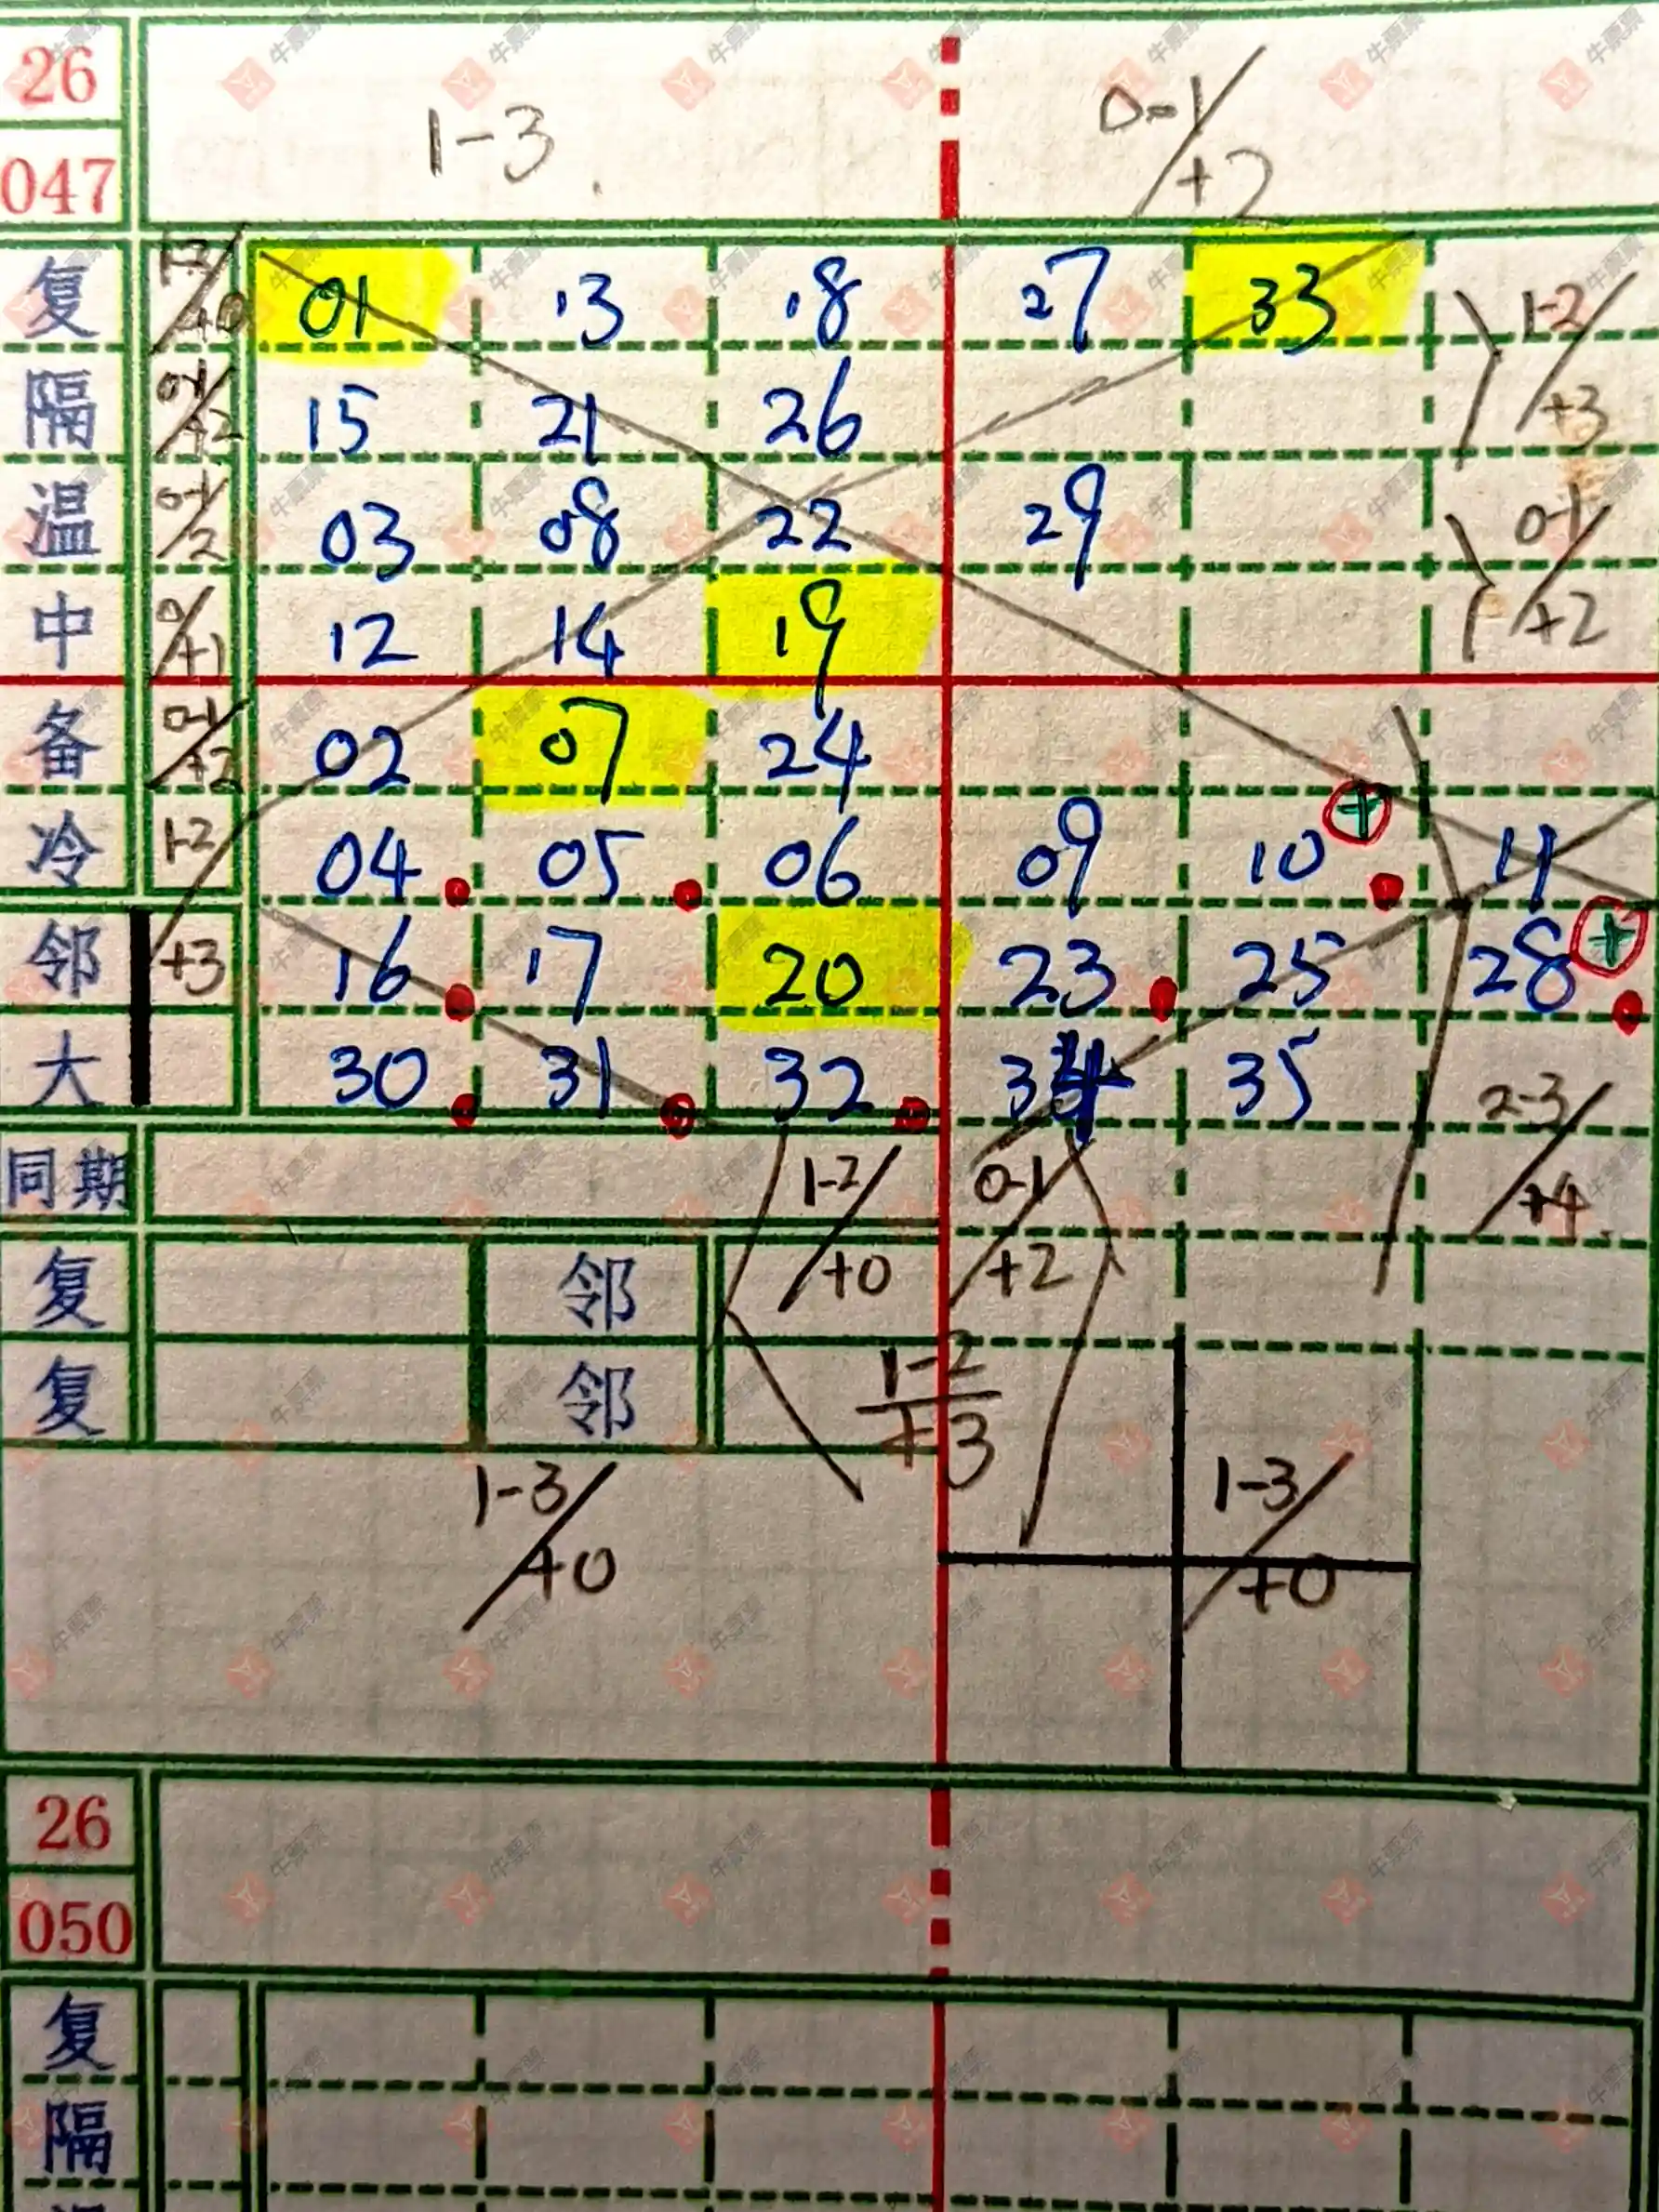 26
1-3
0-1/+2
047
复 1-2/+0 01 13 18 27 33 1-2/+3
隔 0-1/+2 15 21 26
温 0-1/2 03 08 22 29 0-1/+2
中 0/+1 12 14 19
备 0-1/+2 02 07 24
冷 1-2 04 05 06 09 10 + 11
邻 +3 16 17 20 23 25 28 +
大 30 31 32 34 35 2-3/+4
同期 1-2/+0 0-1/+2
复 邻
复 邻 1-2/+3
1-3/+0 1-3/+0
26
050
复
隔
牛票票